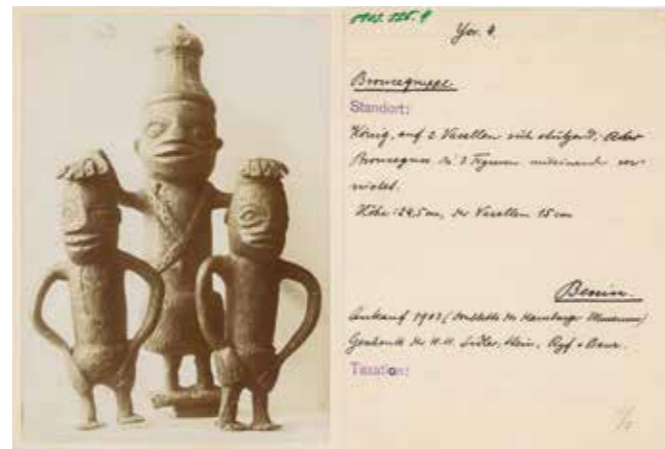 1903.325.4
Yor. 4.
Broncegruppe
Standort:
König, auf 2 Vasallen sich stützend,
Bronceguss die 3 Figuren miteinander ver-
nietet.
Höhe: 24,5 cm, der Vasallen 15 cm
Benin.
Ankauf 1903 (Doublette des Hamburger Museums)
Geschenk der H.H.
Taxation: